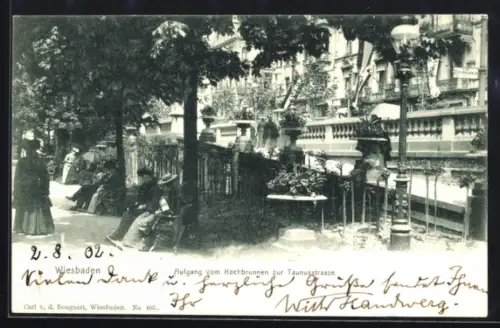 2. 8. 02.
Wiesbaden
Aufgang vom Kochbrunnen zur Taunusstrasse.
Vielen Dank u. herzliche Grüße sendet Ihnen
Ihr Willy Handwerg.
Carl v. d. Boogaart, Wiesbaden. No. 405.